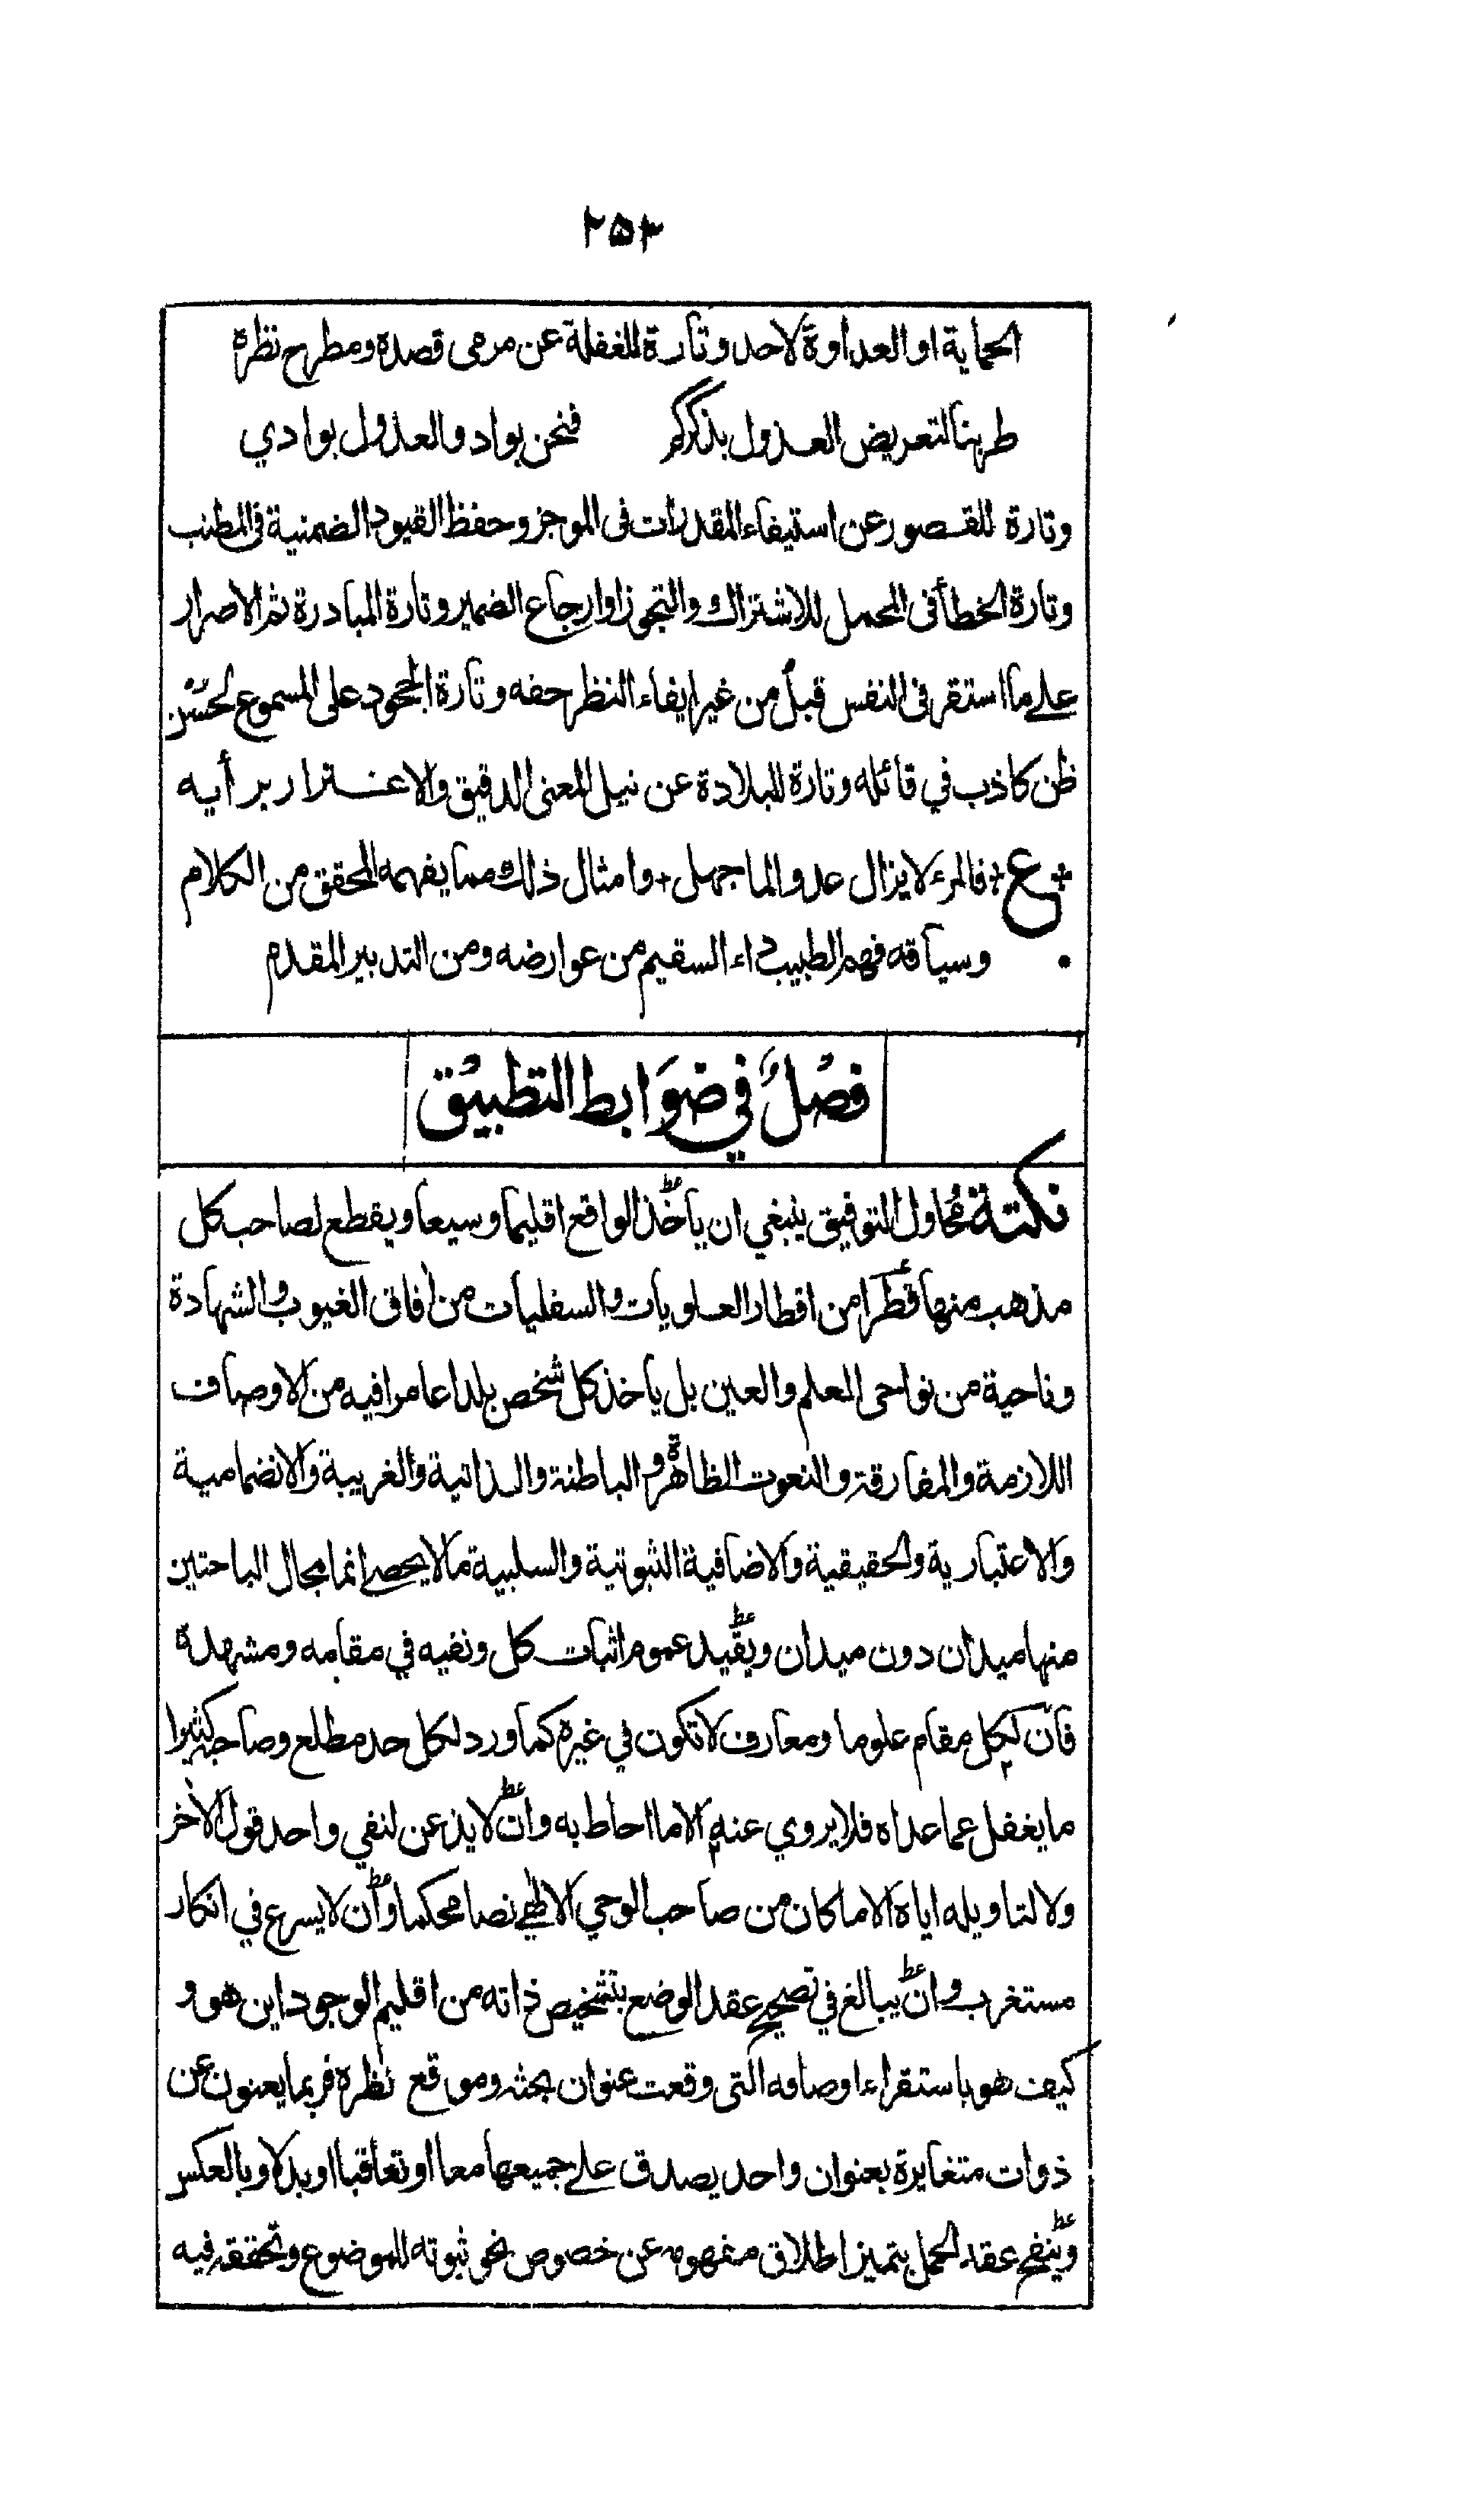 ٢٥٣
الحماية او العداوة لاحد وتارة للغفلة عن مرمى قصده ومطرح نظره
طربنا لتعريض العذول بذكركم فنحن بواد والعذول بوادي
وتارة للقصور عن استيفاء المقدرات فى الموجز وحفظ القيود الضمنية فى المطنب
وتارة الخطأ فى المحمل للاشتراك والتجوز او ارجاع الضمير وتارة المبادرة ثم الاصرار
على ما استقر فى النفس قبل من غير ايفاء النظر حقه وتارة الجحود على المسموع لحسن
ظن كاذب في قائله وتارة للبلادة عن نيل المعنى الدقيق والاغترار برأيه
ع فالمرء لا يزال عدوا لما جهل + وامثال ذلك مما يفهمه المحقق من الكلام
وسياقه فهم الطبيب داء السقيم من عوارضه ومن التدبير المقدم
فصل في ضوابط التطبيق
نكتة محاول التوفيق ينبغي ان ياخذ الواقع اقليما وسيعا ويقطع لصاحب كل
مذهب منها قطرا من اقطار العلويات والسفليات من أفاق الغيوب والشهادة
وناحية من نواحى العلم والعين بل ياخذ كل شخص بلدا عامرا فيه من الاوصاف
اللازمة والمفارقة والنعوت الظاهرة والباطنة والذاتية والغريبة والانضمامية
والاعتبارية والحقيقية والاضافية الثبوتية والسلبية مالا يحصى انما مجال الباحثين
منها ميدان دون ميدان ويقيد عموم اثبات كل ونفيه في مقامه ومشهده
فان لكل مقام علوما ومعارف لا تكون في غيره كما ورد لكل حد مطلع وصاحبه كثيرا
ما يغفل عما عداه فلا يروي عنه الا ما احاط به وان لا يذعن لنفي واحد قول الأخر
ولا لتاويله اياه الا ما كان من صاحب الوحي الالهي نصا محكما وان لا يسرع في انكار
مستغرب وان يبالغ في تصحيح عقد الوضع بتشخيص ذاته من اقليم الوجود اين هو و
كيف هو باستقراء اوصافه التى وقعت عنوان بحثه وموقع نظره فربما يعنون عن
ذوات متغايرة بعنوان واحد يصدق على جميعها معا او تعاقبا او بدلا وبالعكس
وينقح عقد الحمل بتميز اطلاق مفهومه عن خصوص نحو ثبوته للموضوع وتحققه فيه